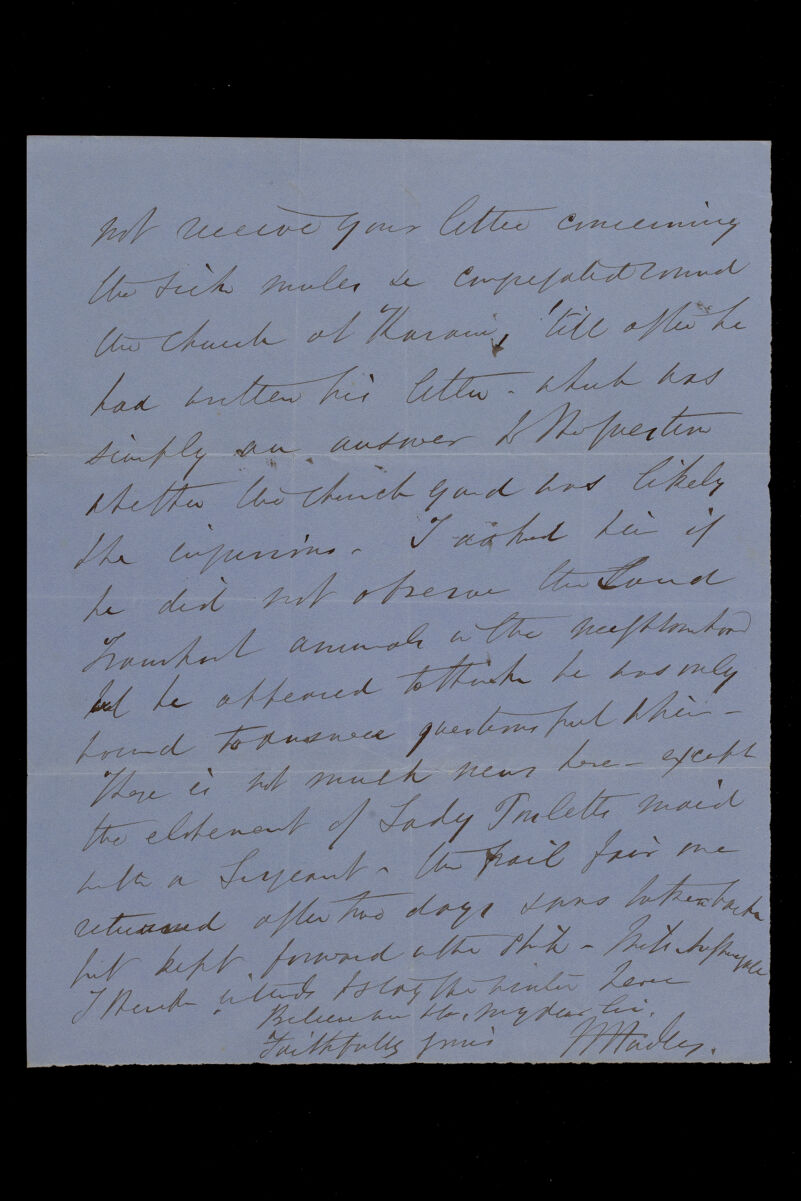 not receive your letter concerning
the sick mules &c congregated round
the church at Karani, 'till after he
had written his letter - which was
simply an answer to the question
whether the church yard was likely
to be injurious - I asked him if
he did not observe the Land
Transport animals in the neighbourhood
but he appeared to think he was only
bound to answer questions put to him -
There is not much news here - except
the elopement of Lady Pouletts maid
with a Sergeant - the frail fair one
returned after two days & was taken back
but kept forward in the Ship - Miss Nightingale
I think intends to stay the winter here
Believe me to be, my dear Sir,
Faithfully yours